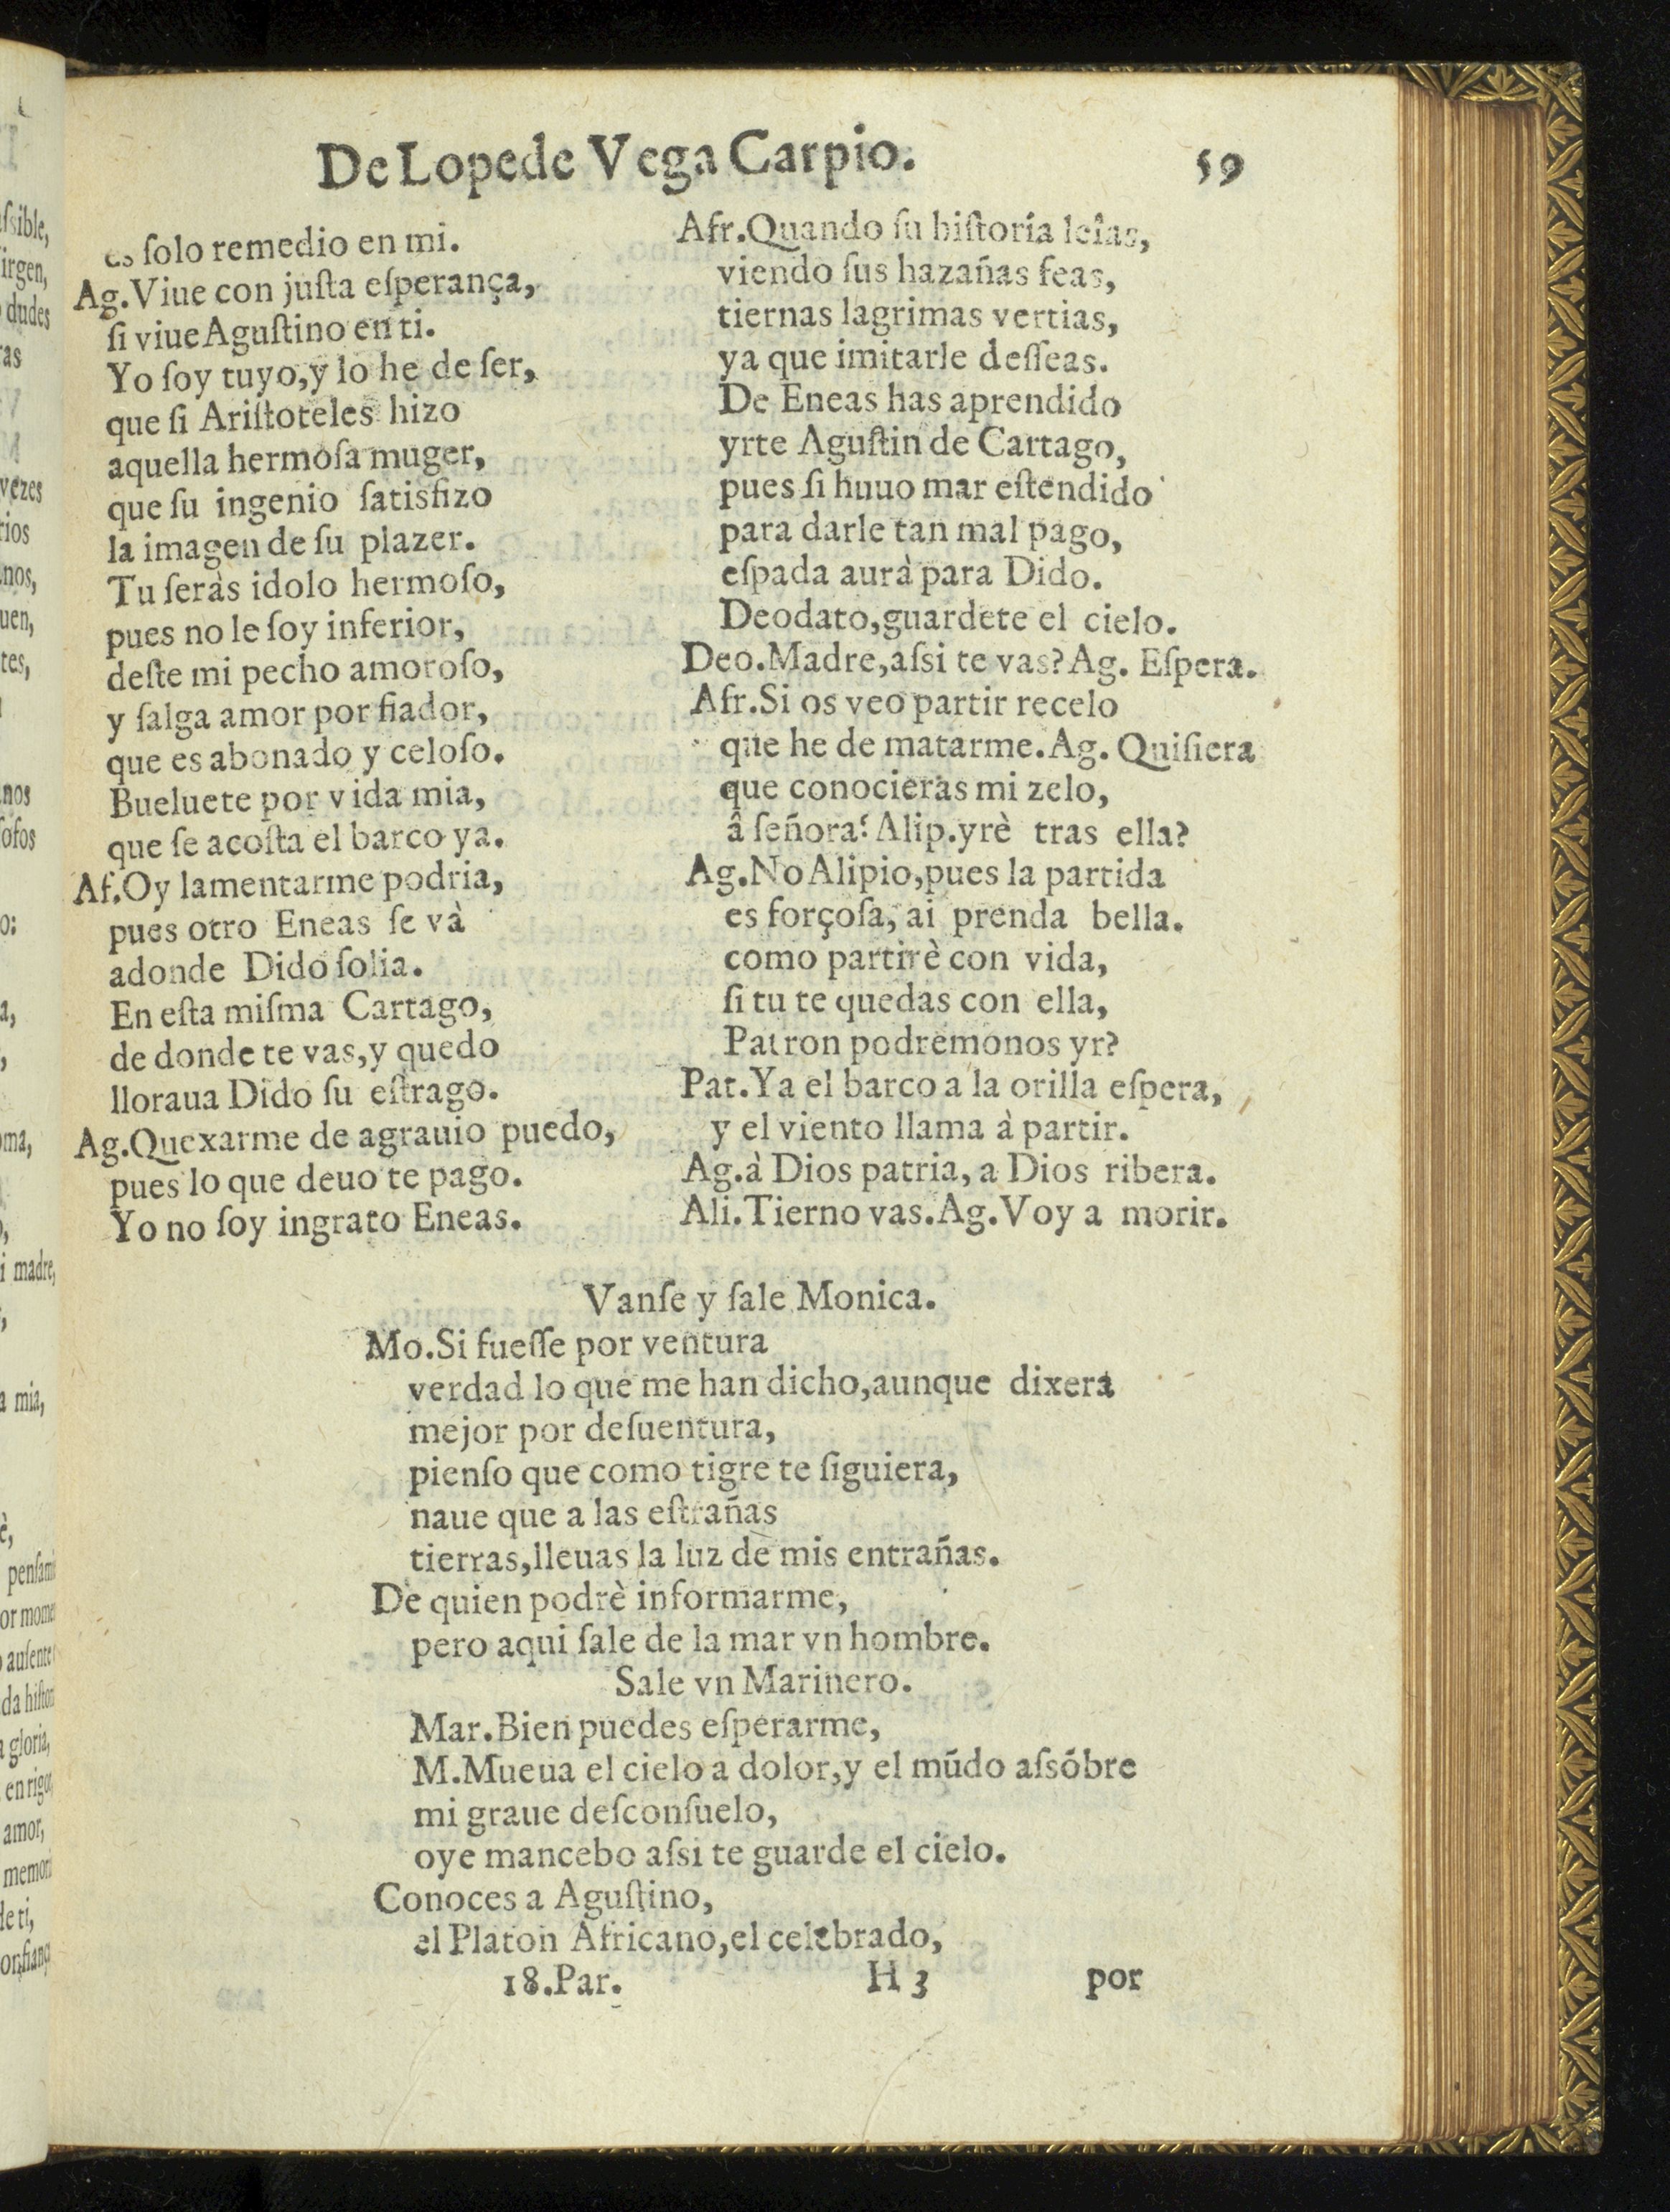 De Lope de Vega Carpio. 59
es ſolo remedio en mi.
Ag. Viue con juſta eſperança,
ſi viue Aguſtino en ti.
Yo ſoy tuyo, y lo he de ſer,
que ſi Ariſtoteles hizo
aquella hermoſa muger,
que ſu ingenio ſatisfizo
la imagen de ſu plazer.
Tu ſeràs idolo hermoſo,
pues no le ſoy inferior,
deſte mi pecho amoroſo,
y ſalga amor por fiador,
que es abonado y celoſo.
Bueluete por vida mia,
que ſe acoſta el barco ya.
Af. Oy lamentarme podria,
pues otro Eneas ſe và
adonde Dido ſolia.
En eſta miſma Cartago,
de donde te vas, y quedo
lloraua Dido ſu eſtrago.
Ag. Quexarme de agrauio puedo,
pues lo que deuo te pago.
Yo no ſoy ingrato Eneas.
Afr. Quando ſu hiſtoria leîas,
viendo ſus hazañas feas,
tiernas lagrimas vertias,
ya que imitarle deſſeas.
De Eneas has aprendido
yrte Aguſtin de Cartago,
pues ſi huuo mar eſtendido
para darle tan mal pago,
eſpada aurà para Dido.
Deodato, guardete el cielo.
Deo. Madre, aſsi te vas? Ag. Eſpera.
Afr. Si os veo partir recelo
que he de matarme. Ag. Quiſiera
que conocieras mi zelo,
â ſeñora? Alip. yrè tras ella?
Ag. No Alipio, pues la partida
es forçoſa, ai prenda bella.
como partirè con vida,
ſi tu te quedas con ella,
Patron podremonos yr?
Pat. Ya el barco a la orilla eſpera,
y el viento llama à partir.
Ag. à Dios patria, a Dios ribera.
Ali. Tierno vas. Ag. Voy a morir.
Vanſe y ſale Monica.
Mo. Si fueſſe por ventura
verdad lo que me han dicho, aunque dixera
mejor por deſuentura,
pienſo que como tigre te ſiguiera,
naue que a las eſtrañas
tierras, lleuas la luz de mis entrañas.
De quien podrè informarme,
pero aqui ſale de la mar vn hombre.
Sale vn Marinero.
Mar. Bien puedes eſperarme,
M. Mueua el cielo a dolor, y el mũdo aſsõbre
mi graue deſconſuelo,
oye mancebo aſsi te guarde el cielo.
Conoces a Aguſtino,
el Platon Africano, el celebrado,
18. Par. H 3 por